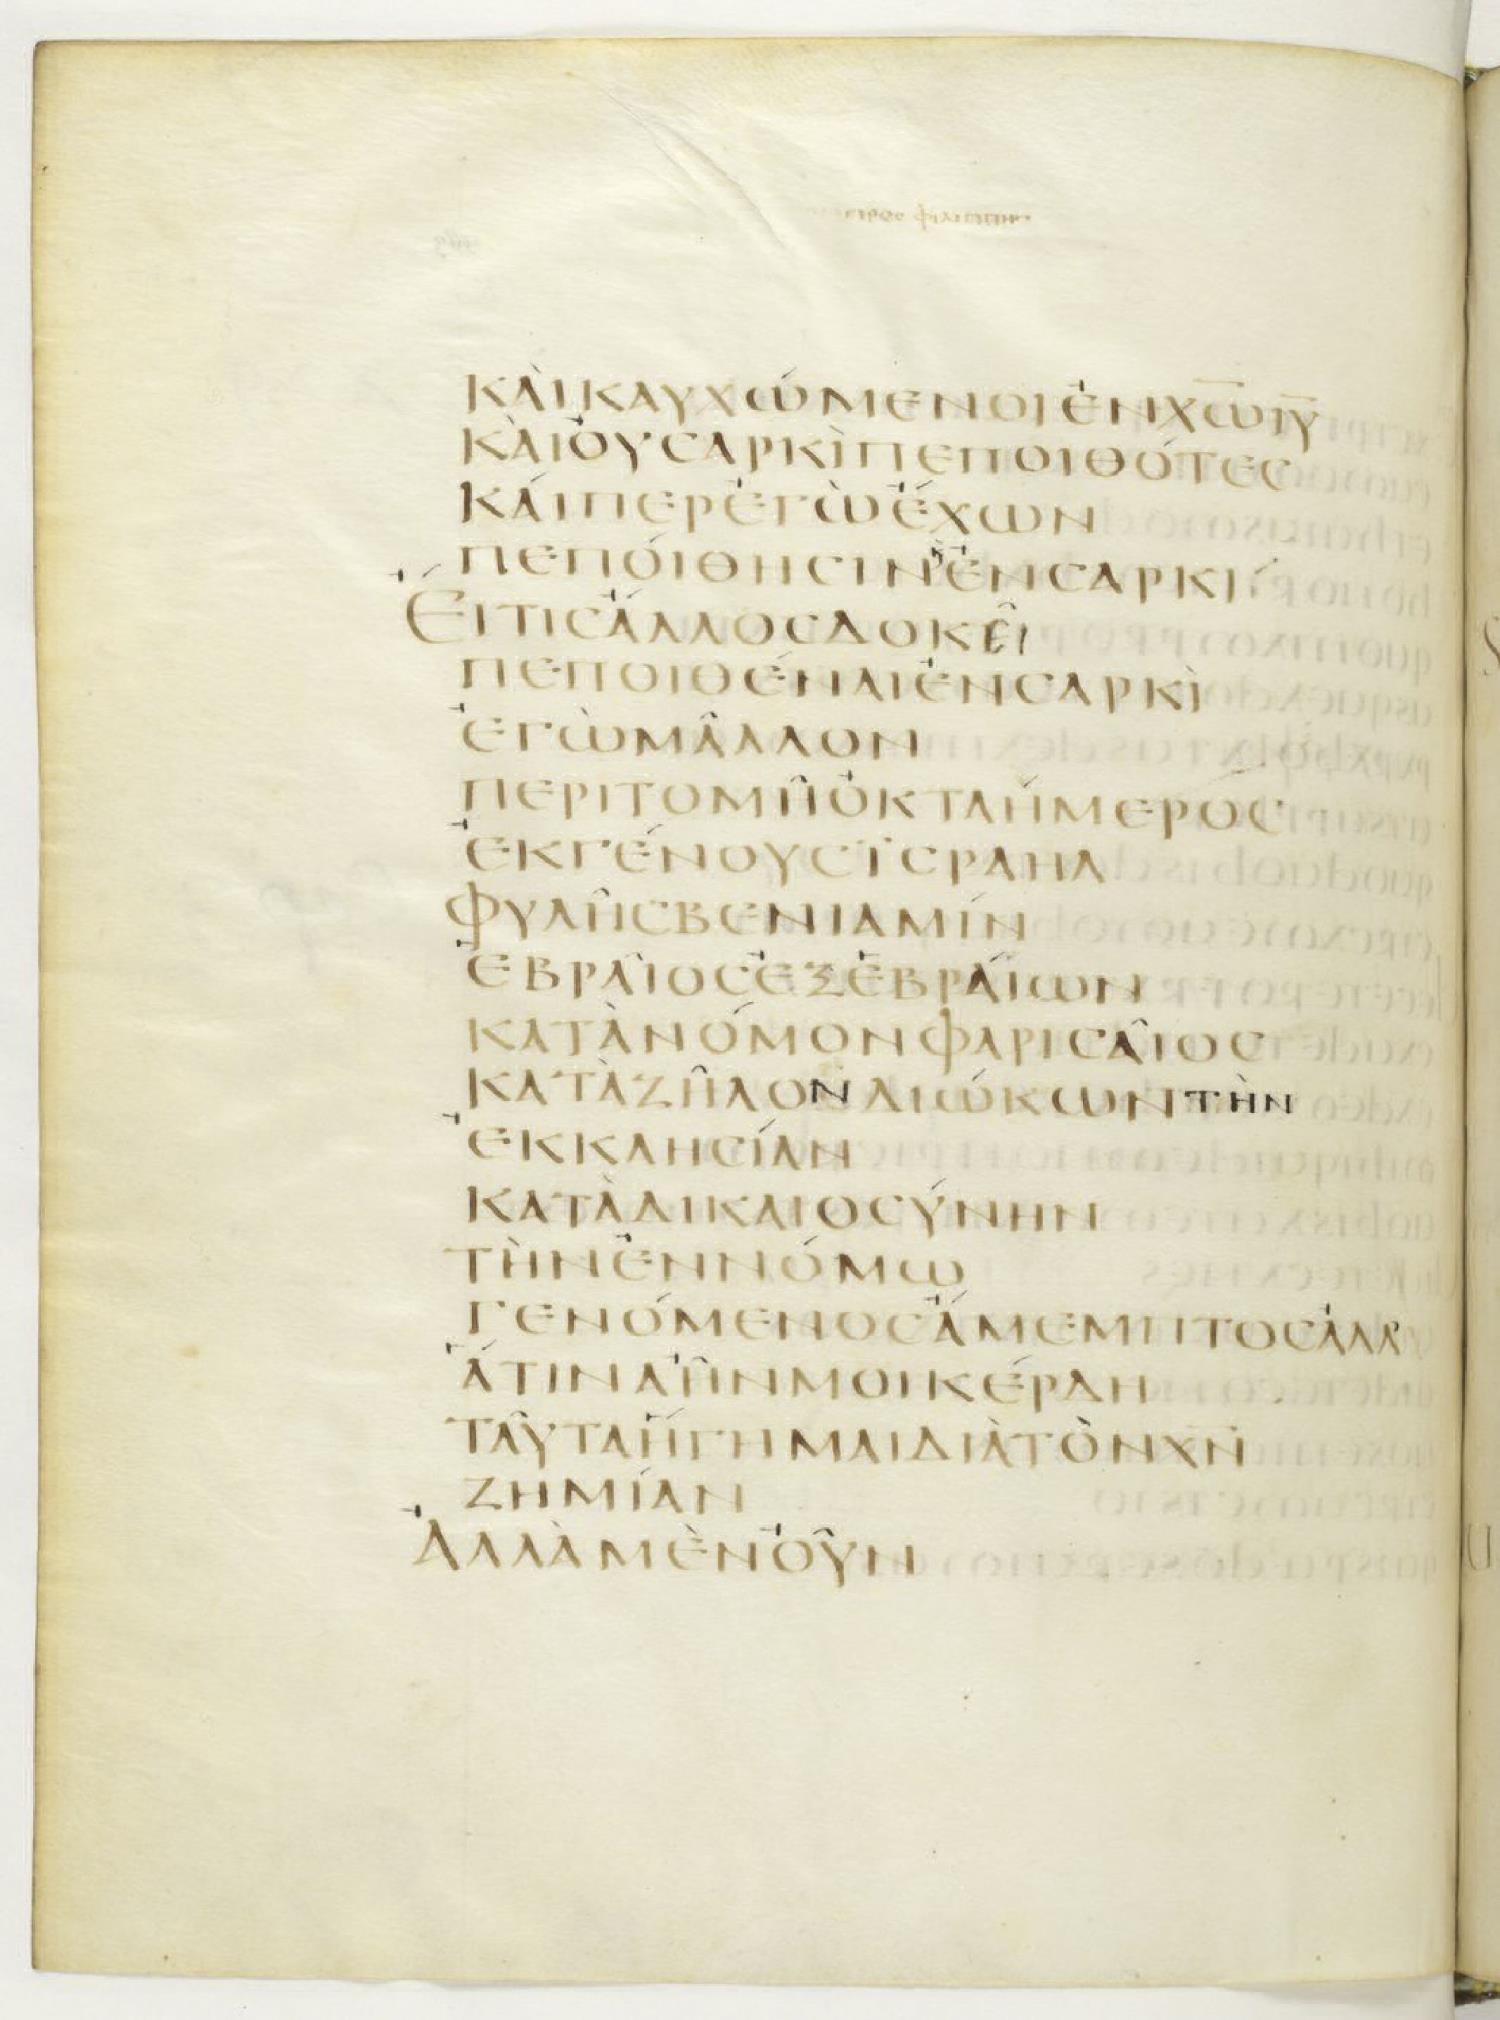 προς φιλιππη
κὰικαυχώμενοιἐνχ̅ω̅ι̅υ̅
κὰιὀυσαρκὶπεποιθότες
κάιπερἐγὼἔχων
πεπόιθησινκ̀ἐνσαρκί
Ἔιτισἄλλοσδοκε̂ι
πεποιθέναιἐνσαρκὶ
ἐγὼμα̂λλον
περιτομη̂ὀκταήμερός
ἐκγένουσϊσραηλ
φυλη̂σβενιαμίν
ἑβρα̂ιοσἐξἑβράιων
κατὰνόμονφαρισα̂ιος
κατὰζη̂λονδιώκωντὴν
ἐκκλησίαν
κατὰδικαιοσύνην
τὴνἐννόμω
γενόμενοσἄμεμπτοσἀλλ
ἅτιναἠ̂νμοικέρδη
τα̂υταἥγημαιδιὰτὸνχ̅ν̅
ζημίαν
Ἀλλὰμὲνὀυ̂ν